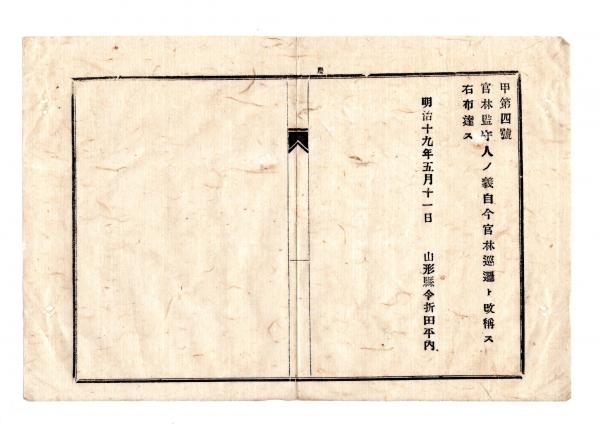 甲第四號
官林監守人ノ義自今官林巡邏ト改稱ス
右布達ス
明治十九年五月十一日　山形縣令折田平内